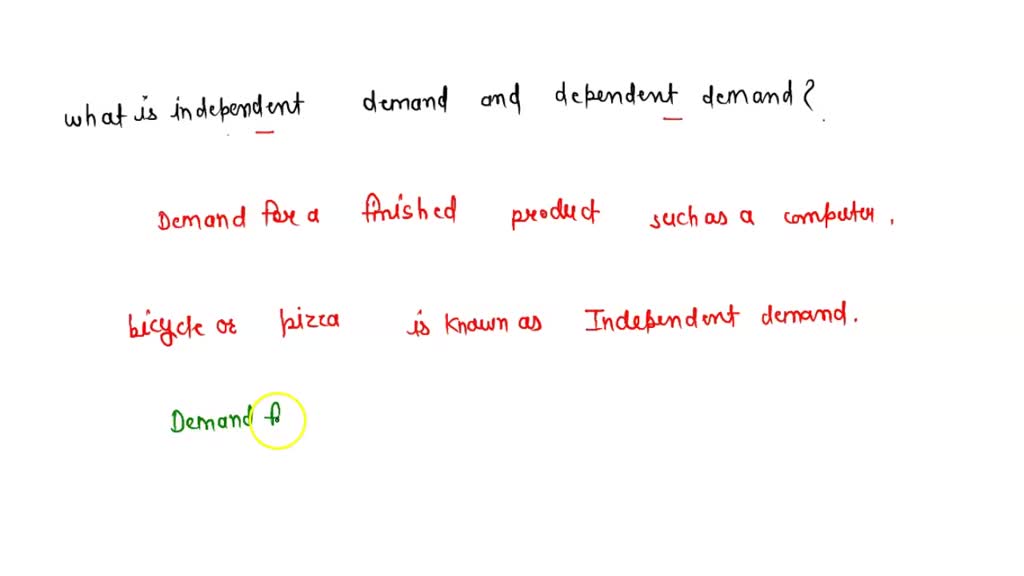 what is independent demand and dependent demand?
Demand for a finished product such as a computer,
bicycle or pizza is known as Independent demand.
Demand f